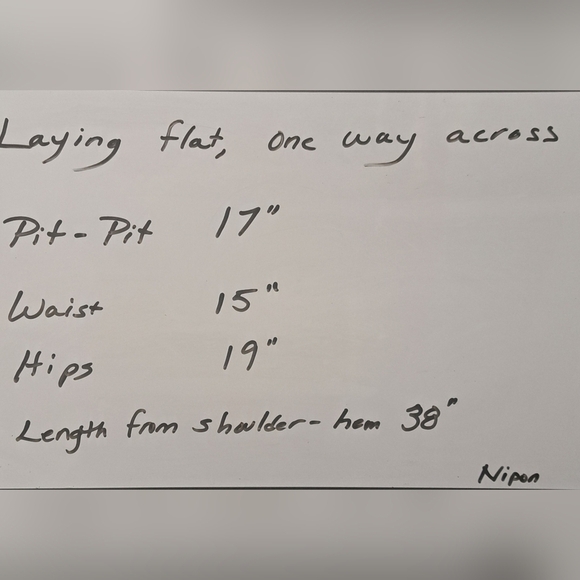 Laying flat, one way across
Pit-Pit 17"
Waist 15"
Hips 19"
Length from shoulder-hem 38"
Nipon